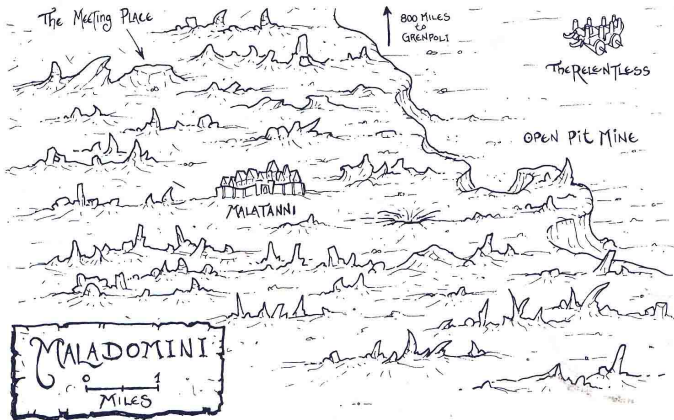 The Meeting Place
800 MILES
to
GRENPOLI
The RELENTLESS
OPEN PIT MINE
MALATANNI
MALADOMINI
0 1
MILES